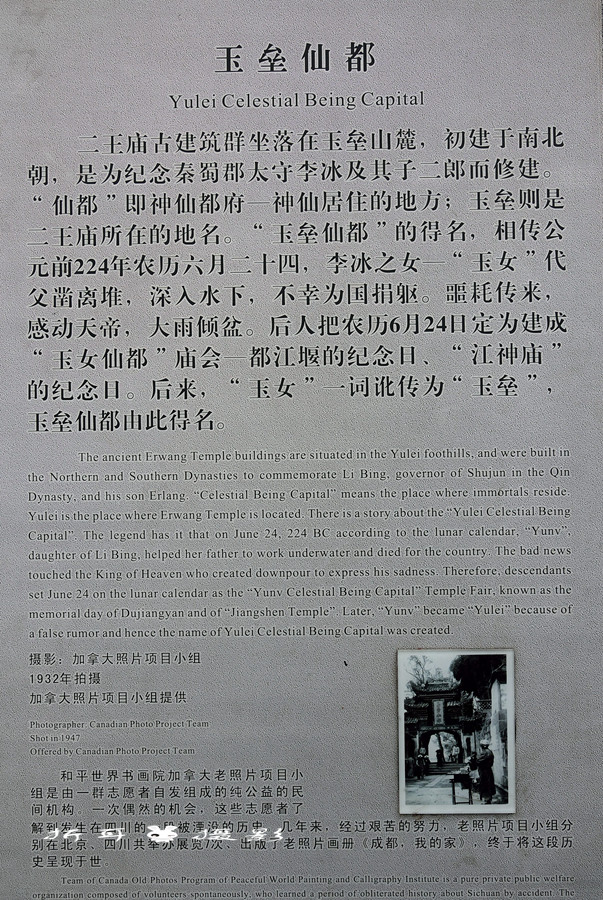 玉垒仙都
Yulei Celestial Being Capital
二王庙古建筑群坐落在玉垒山麓，初建于南北
朝，是为纪念秦蜀郡太守李冰及其子二郎而修建。
“仙都”即神仙都府—神仙居住的地方；玉垒则是
二王庙所在的地名。“玉垒仙都”的得名，相传公
元前224年农历六月二十四，李冰之女—“玉女”代
父凿离堆，深入水下，不幸为国捐躯。噩耗传来，
感动天帝，大雨倾盆。后人把农历6月24日定为建成
“玉女仙都”庙会—都江堰的纪念日、“江神庙”
的纪念日。后来，“玉女”一词讹传为“玉垒”，
玉垒仙都由此得名。
The ancient Erwang Temple buildings are situated in the Yulei foothills, and were built in
the Northern and Southern Dynasties to commemorate Li Bing, governor of Shujun in the Qin
Dynasty, and his son Erlang. “Celestial Being Capital” means the place where immortals reside.
Yulei is the place where Erwang Temple is located. There is a story about the “Yulei Celestial Being
Capital”. The legend has it that on June 24, 224 BC according to the lunar calendar, “Yunv”,
daughter of Li Bing, helped her father to work underwater and died for the country. The bad news
touched the King of Heaven who created downpour to express his sadness. Therefore, descendants
set June 24 on the lunar calendar as the “Yunv Celestial Being Capital” Temple Fair, known as the
memorial day of Dujiangyan and of “Jiangshen Temple”. Later, “Yunv” became “Yulei” because of
a false rumor and hence the name of Yulei Celestial Being Capital was created.
摄影：加拿大照片项目小组
1932年拍摄
加拿大照片项目小组提供
Photographer: Canadian Photo Project Team
Shot in 1947
Offered by Canadian Photo Project Team
和平世界书画院加拿大老照片项目小
组是由一群志愿者自发组成的纯公益的民
间机构。一次偶然的机会，这些志愿者了
解到发生在四川的一段被湮没的历史。几年来，经过艰苦的努力，老照片项目小组分
别在北京、四川共举办展览7次、出版了老照片画册《成都，我的家》，终于将这段历
史呈现于世。
Team of Canada Old Photos Program of Peaceful World Painting and Calligraphy Institute is a pure private public welfare
organization composed of volunteers spontaneously, who learned a period of obliterated history about Sichuan by accident. The